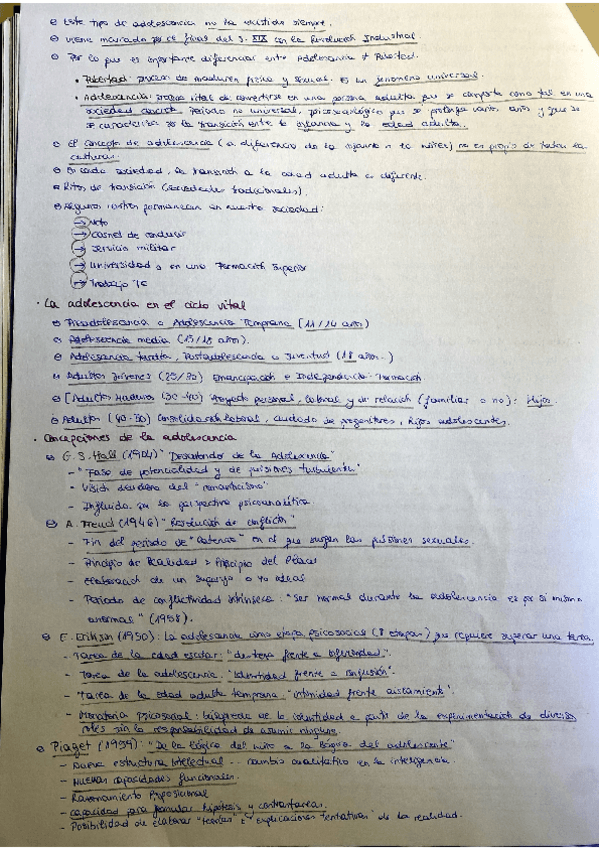 ⊖ Este tipo de adolescencia no ha existido siempre.
⊖ Viene marcada por el final del S. XIX con la Revolución Industrial
⊖ Por lo que es importante diferenciar entre Adolescencia ≠ Pubertad.
• Pubertad: proceso de madurez física y sexual. Es un fenómeno universal.
• Adolescencia: etapa vital de convertirse en una persona adulta que se comporta como tal en una
sociedad concreta. Período no universal, psicosociológico que se prolonga varios años y que se
se caracteriza por la transición entre la infancia y la edad adulta.
⊖ El concepto de adolescencia (a diferencia de la infancia o la niñez) no es propio de todas las
culturas.
⊖ En cada sociedad, la transición a la edad adulta es diferente.
⊖ Ritos de transición (sociedades tradicionales).
⊖ Algunos permanecen en nuestra sociedad:
→ Voto
→ Carnet de conducir
→ Servicio militar
→ Universidad o en una Formación Superior
→ Trabajo
· La adolescencia en el ciclo vital
⊖ Preadolescencia o Adolescencia Temprana (11/14 años)
⊖ Adolescencia media (15/18 años).
⊖ Adolescencia tardía, Postadolescencia o Juventud (18 años..)
⊖ Adultos Jóvenes (25/30) Emancipación e Independencia. Formación.
⊖ [Adultos Maduros (30-40) Proyecto personal, laboral y de relación (familiar o no): Hijos.
⊖ Adultos (40-50) Consolidación laboral, cuidado de progenitores, hijos adolescentes.
· Concepciones de la adolescencia
⊖ G. S. Hall (1904) "
- "Fase de potencialidad y de pasiones turbulentas"
- Visión del "romanticismo"
- Influida por la perspectiva psicoanalítica.
⊖ A. Freud (1946) "Resolución de conflictos"
- Fin del período de "latencia" en el que surgen las pulsiones sexuales.
- Principio de Realidad > Principio del Placer
- Elaboración de un superyo o yo ideal
- Período de conflictividad intrínseca: "Ser normal durante la adolescencia es por sí mismo
anormal" (1958).
⊖ E. Erikson (1950): La adolescencia como etapa psicosocial (8 etapas) que requiere superar una tarea.
- Tarea de la edad escolar: "destreza frente a inferioridad".
- Tarea de la adolescencia: "Identidad frente a confusión".
- Tarea de la edad adulta temprana: "intimidad frente aislamiento".
- Moratoria psicosocial: búsqueda de la identidad a partir de la experimentación de diversos
roles sin la responsabilidad de asumir ninguno.
⊖ Piaget (1955): "De la lógica del niño a la lógica del adolescente"
- Nueva estructura intelectual.. cambio cualitativo en la inteligencia.
- Nuevas capacidades funcionales.
- Razonamiento Proposicional
- Capacidad para formular hipótesis y contrastarlas.
- Posibilidad de elaborar "teorías" "explicaciones tentativas" de la realidad.